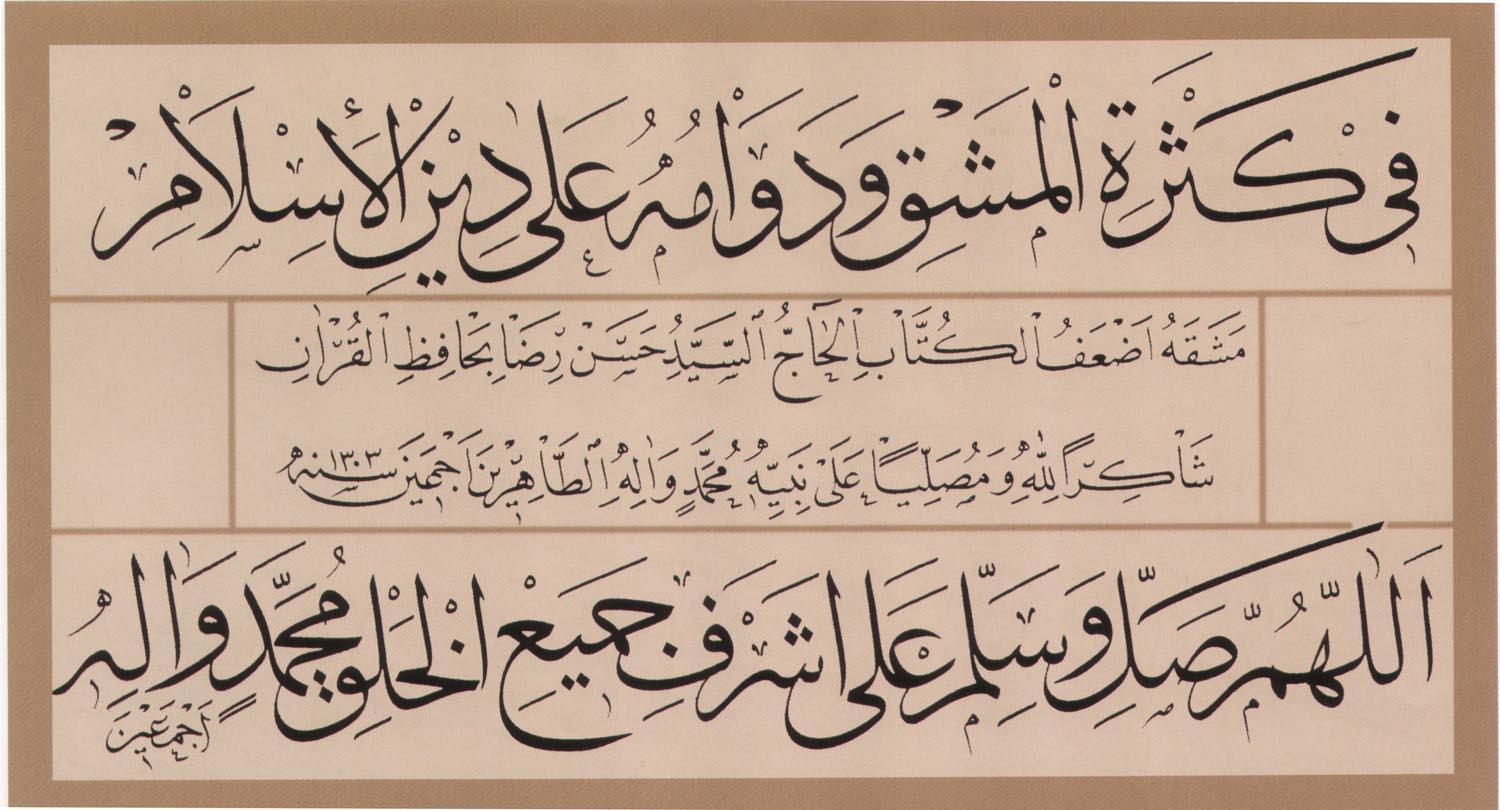 فى كَثْرَةِ الْمَشَقِ وَدَوَامُهُ عَلىٰ دِينِ الْأِسْلَامْ
مَشَقَهُ اَضْعَفُ الكُتَّابْ اِلحَاجُّ السَّيِّدُ حَسَنْ رِّضَا بِحَافِظِ الْقُرْاٰنِ
شَاكِرًا لِلّٰهِ وَمُصَلِّياً عَلىٰ نَبِيِّهِ مُحَمَّدٍ وَاٰلِهِ الطَّاهِرِينَ اَجْمَعِينَ سنه ١٣٠٣
اَللّهُمَّ صَلِّ وَسَلِّمْ عَلىٰ اشْرَفِ جَمِيعِ الْخَلْقِ مُحَمَّدٍ وَاٰلِهِ
اَجْمَعْينَ